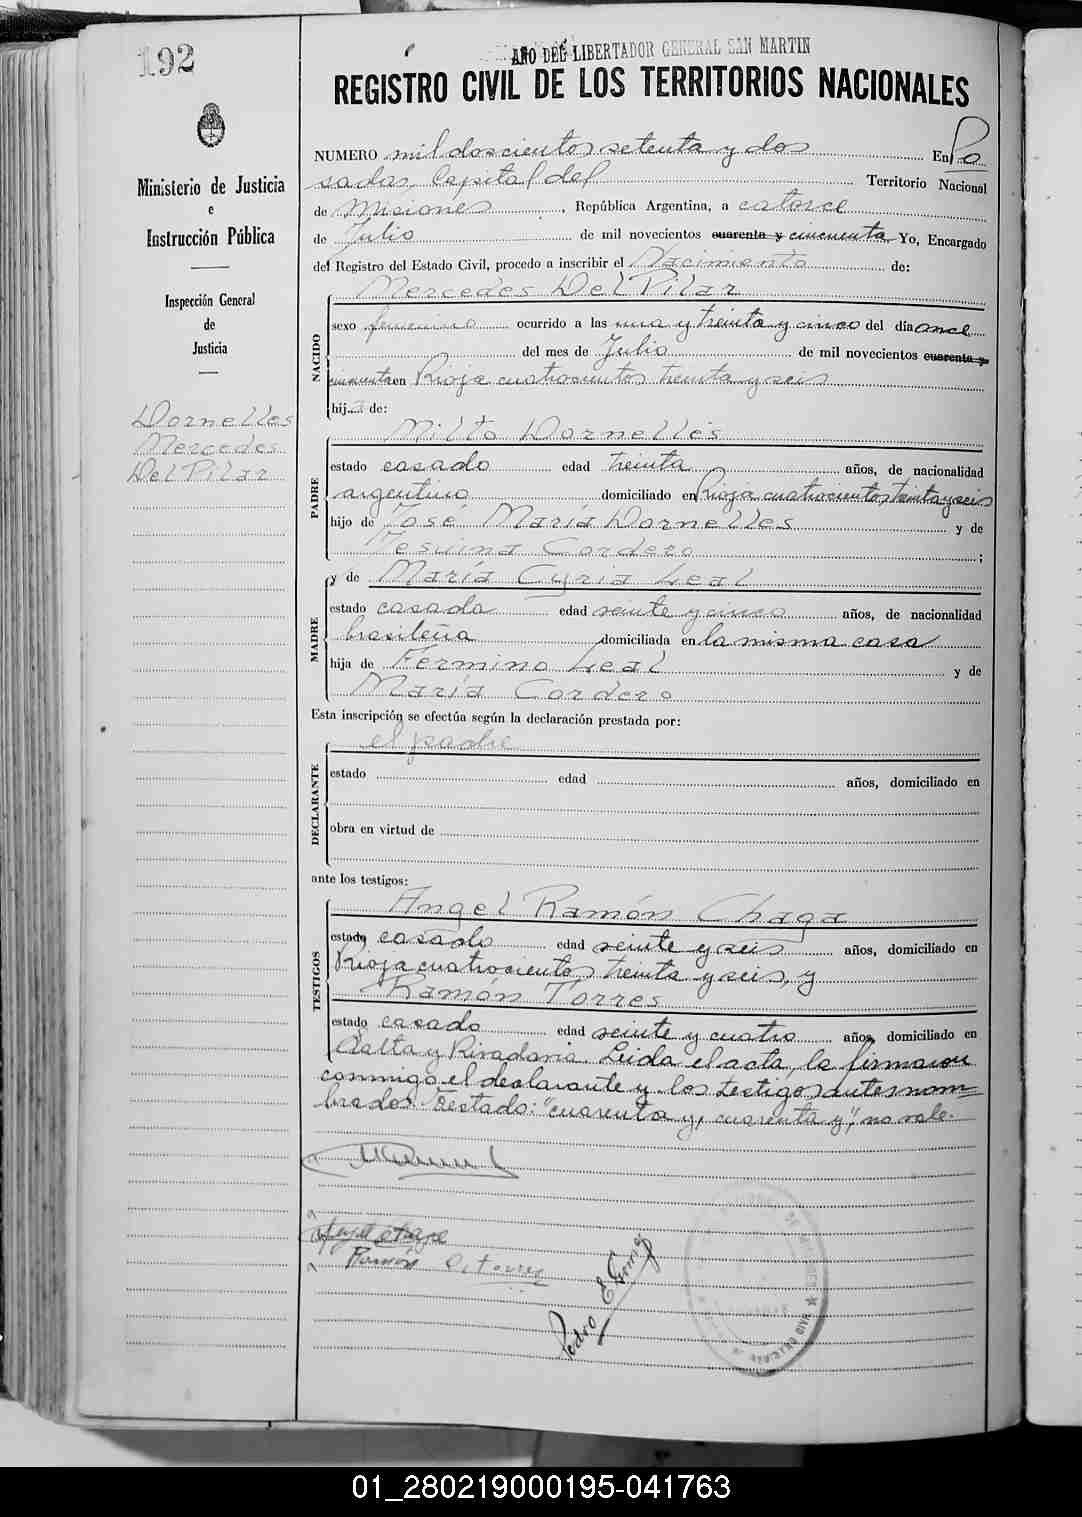 192
AÑO DEL LIBERTADOR GENERAL SAN MARTIN
REGISTRO CIVIL DE LOS TERRITORIOS NACIONALES
Ministerio de Justicia
e
Instrucción Pública
Inspección General
de
Justicia
Dornelles
Mercedes
Del Pilar
NUMERO mil doscientos setenta y dos En Po
sadas, Capital del Territorio Nacional
de Misiones, República Argentina, a catorce
de Julio de mil novecientos cuarenta y cincuenta Yo, Encargado
del Registro del Estado Civil, procedo a inscribir el Nacimiento de:
Mercedes Del Pilar
NACIDO
sexo femenino ocurrido a las una y treinta y cinco del día once
del mes de Julio de mil novecientos cuarenta y
cincuenta en Rioja cuatrocientos treinta y seis
hija de:
Milto Dornelles
PADRE
estado casado edad treinta años, de nacionalidad
argentino domiciliado en Rioja cuatrocientos treinta y seis
hijo de José María Dornelles y de
Cordero;
y de María Cyria Leal
MADRE
estado casada edad veinte y cinco años, de nacionalidad
brasileña domiciliada en la misma casa
hija de Fermino Leal y de
María Cordero
Esta inscripción se efectúa según la declaración prestada por:
el padre
DECLARANTE
estado edad años, domiciliado en
obra en virtud de
ante los testigos:
Angel Ramón Chaga
TESTIGOS
estado casado edad veinte y seis años, domiciliado en
Rioja cuatrocientos treinta y seis, y
Ramón Torres
estado casado edad veinte y cuatro años, domiciliado en
Salta y Rivadavia. Leida el acta, la firmaron
conmigo el declarante y los testigos antes nom=
brados. Testado: "cuarenta y, cuarenta y", no vale.
Ramón Torres
Pedro E Gomez
01_280219000195-041763